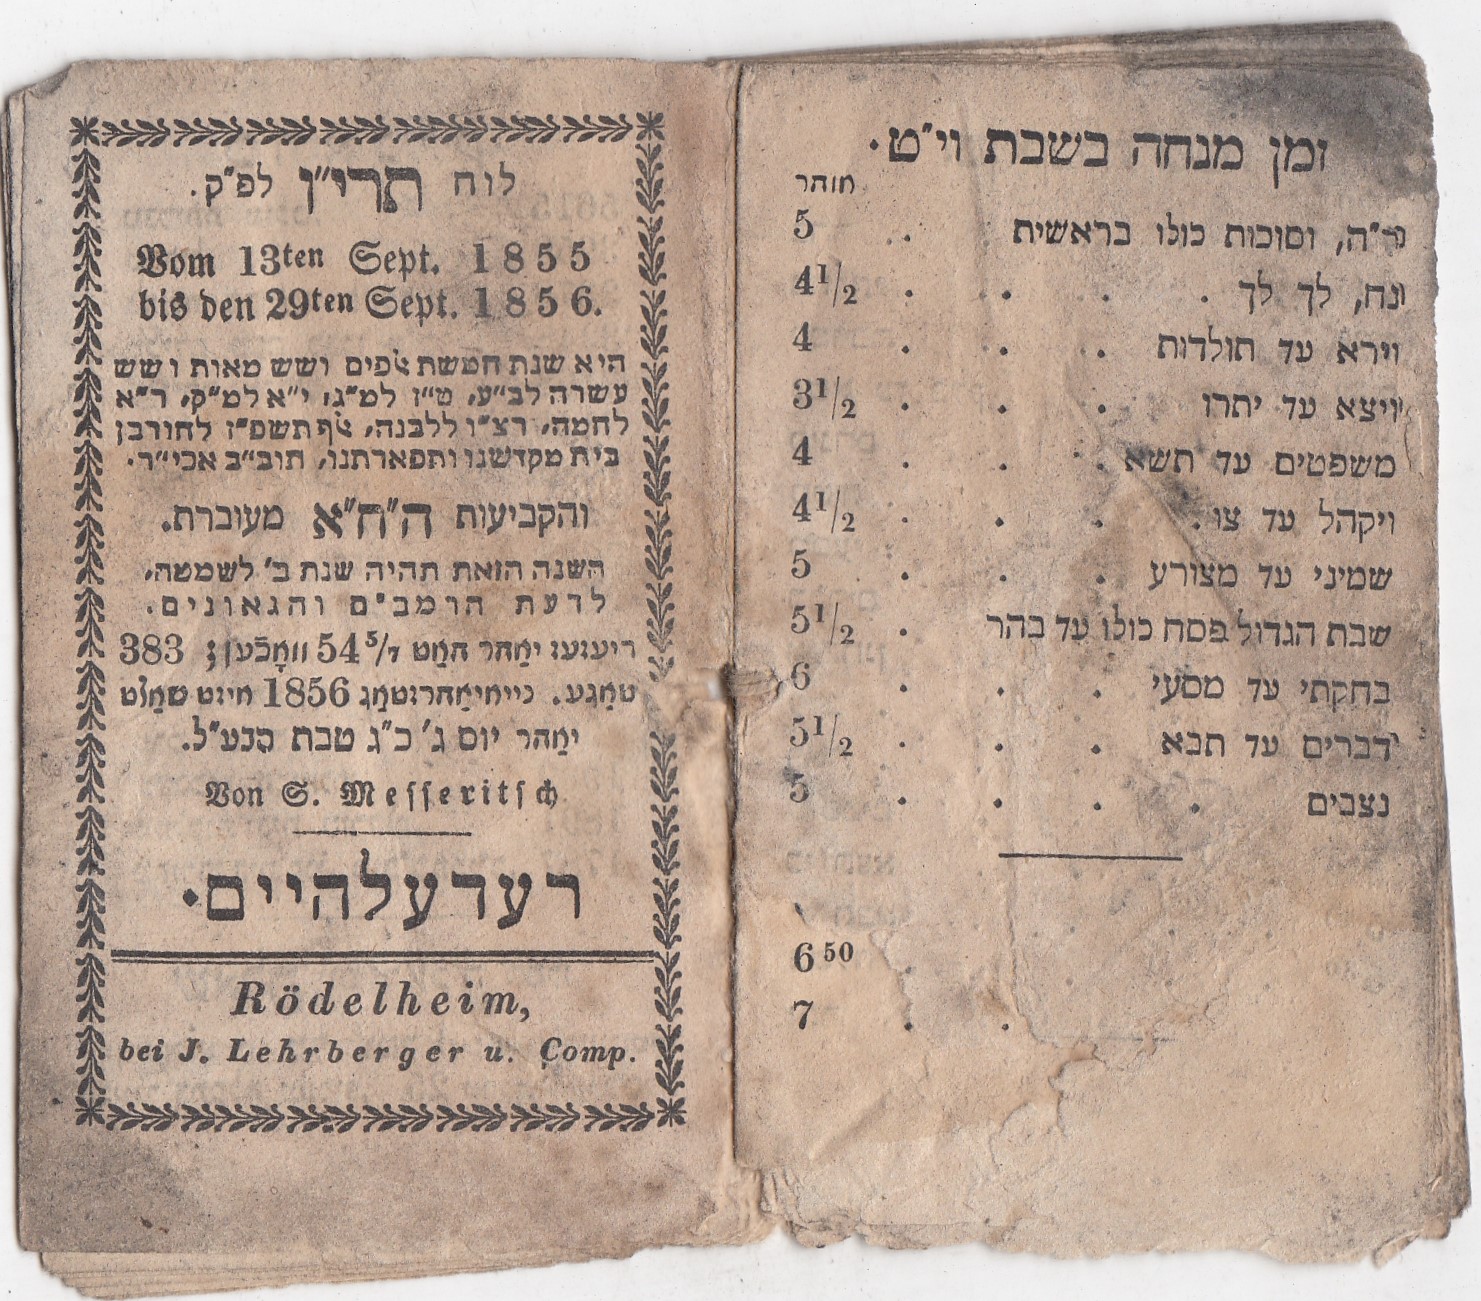 זמן מנחה בשבת וי״ט.
מוהר
ר״ה, וסוכות כולו בראשית . . 5
נח, לך לך . . . . 4 1/2
וירא עד תולדות . . . 4
ויצא עד יתרו . . . 3 1/2
משפטים עד תשא . . . 4
ויקהל עד צו . . . . 4 1/2
שמיני עד מצורע . . . 5
שבת הגדול פסח כולו עד בהר . 5 1/2
בחקתי עד מסעי . . . 6
דברים עד תבא . . . 5 1/2
נצבים . . . . 5
6 50 .
7 . .
לוח תרי״ו לפ״ק.
Vom 13ten Sept. 1855
bis den 29ten Sept. 1856.
היא שנת חמשת אלפים ושש מאות ושש
עשרה לב״ע, ט״ז למ״ג, י״א למ״ק, ר״א
לחמה, רצ״ו ללבנה, אלף תשפ״ז לחורבן
בית מקדשנו ותפארתנו, תוב״ב אכי״ר.
והקביעות ה״ח״א מעוברת.
השנה הזאת תהיה שנת ב׳ לשמטה,
לדעת הרמב״ם והגאונים.
דיעזעז יאהר האט 54 5/7 וואָכֿען; 383
טאַגע. נייאיאַהרזטאַג 1856 איזט שאַלט
יאַהר יום ג׳ כ״ג טבת הבע״ל.
Von S. Messeritsch
רעדעלהיים.
Rödelheim,
bei J. Lehrberger u. Comp.